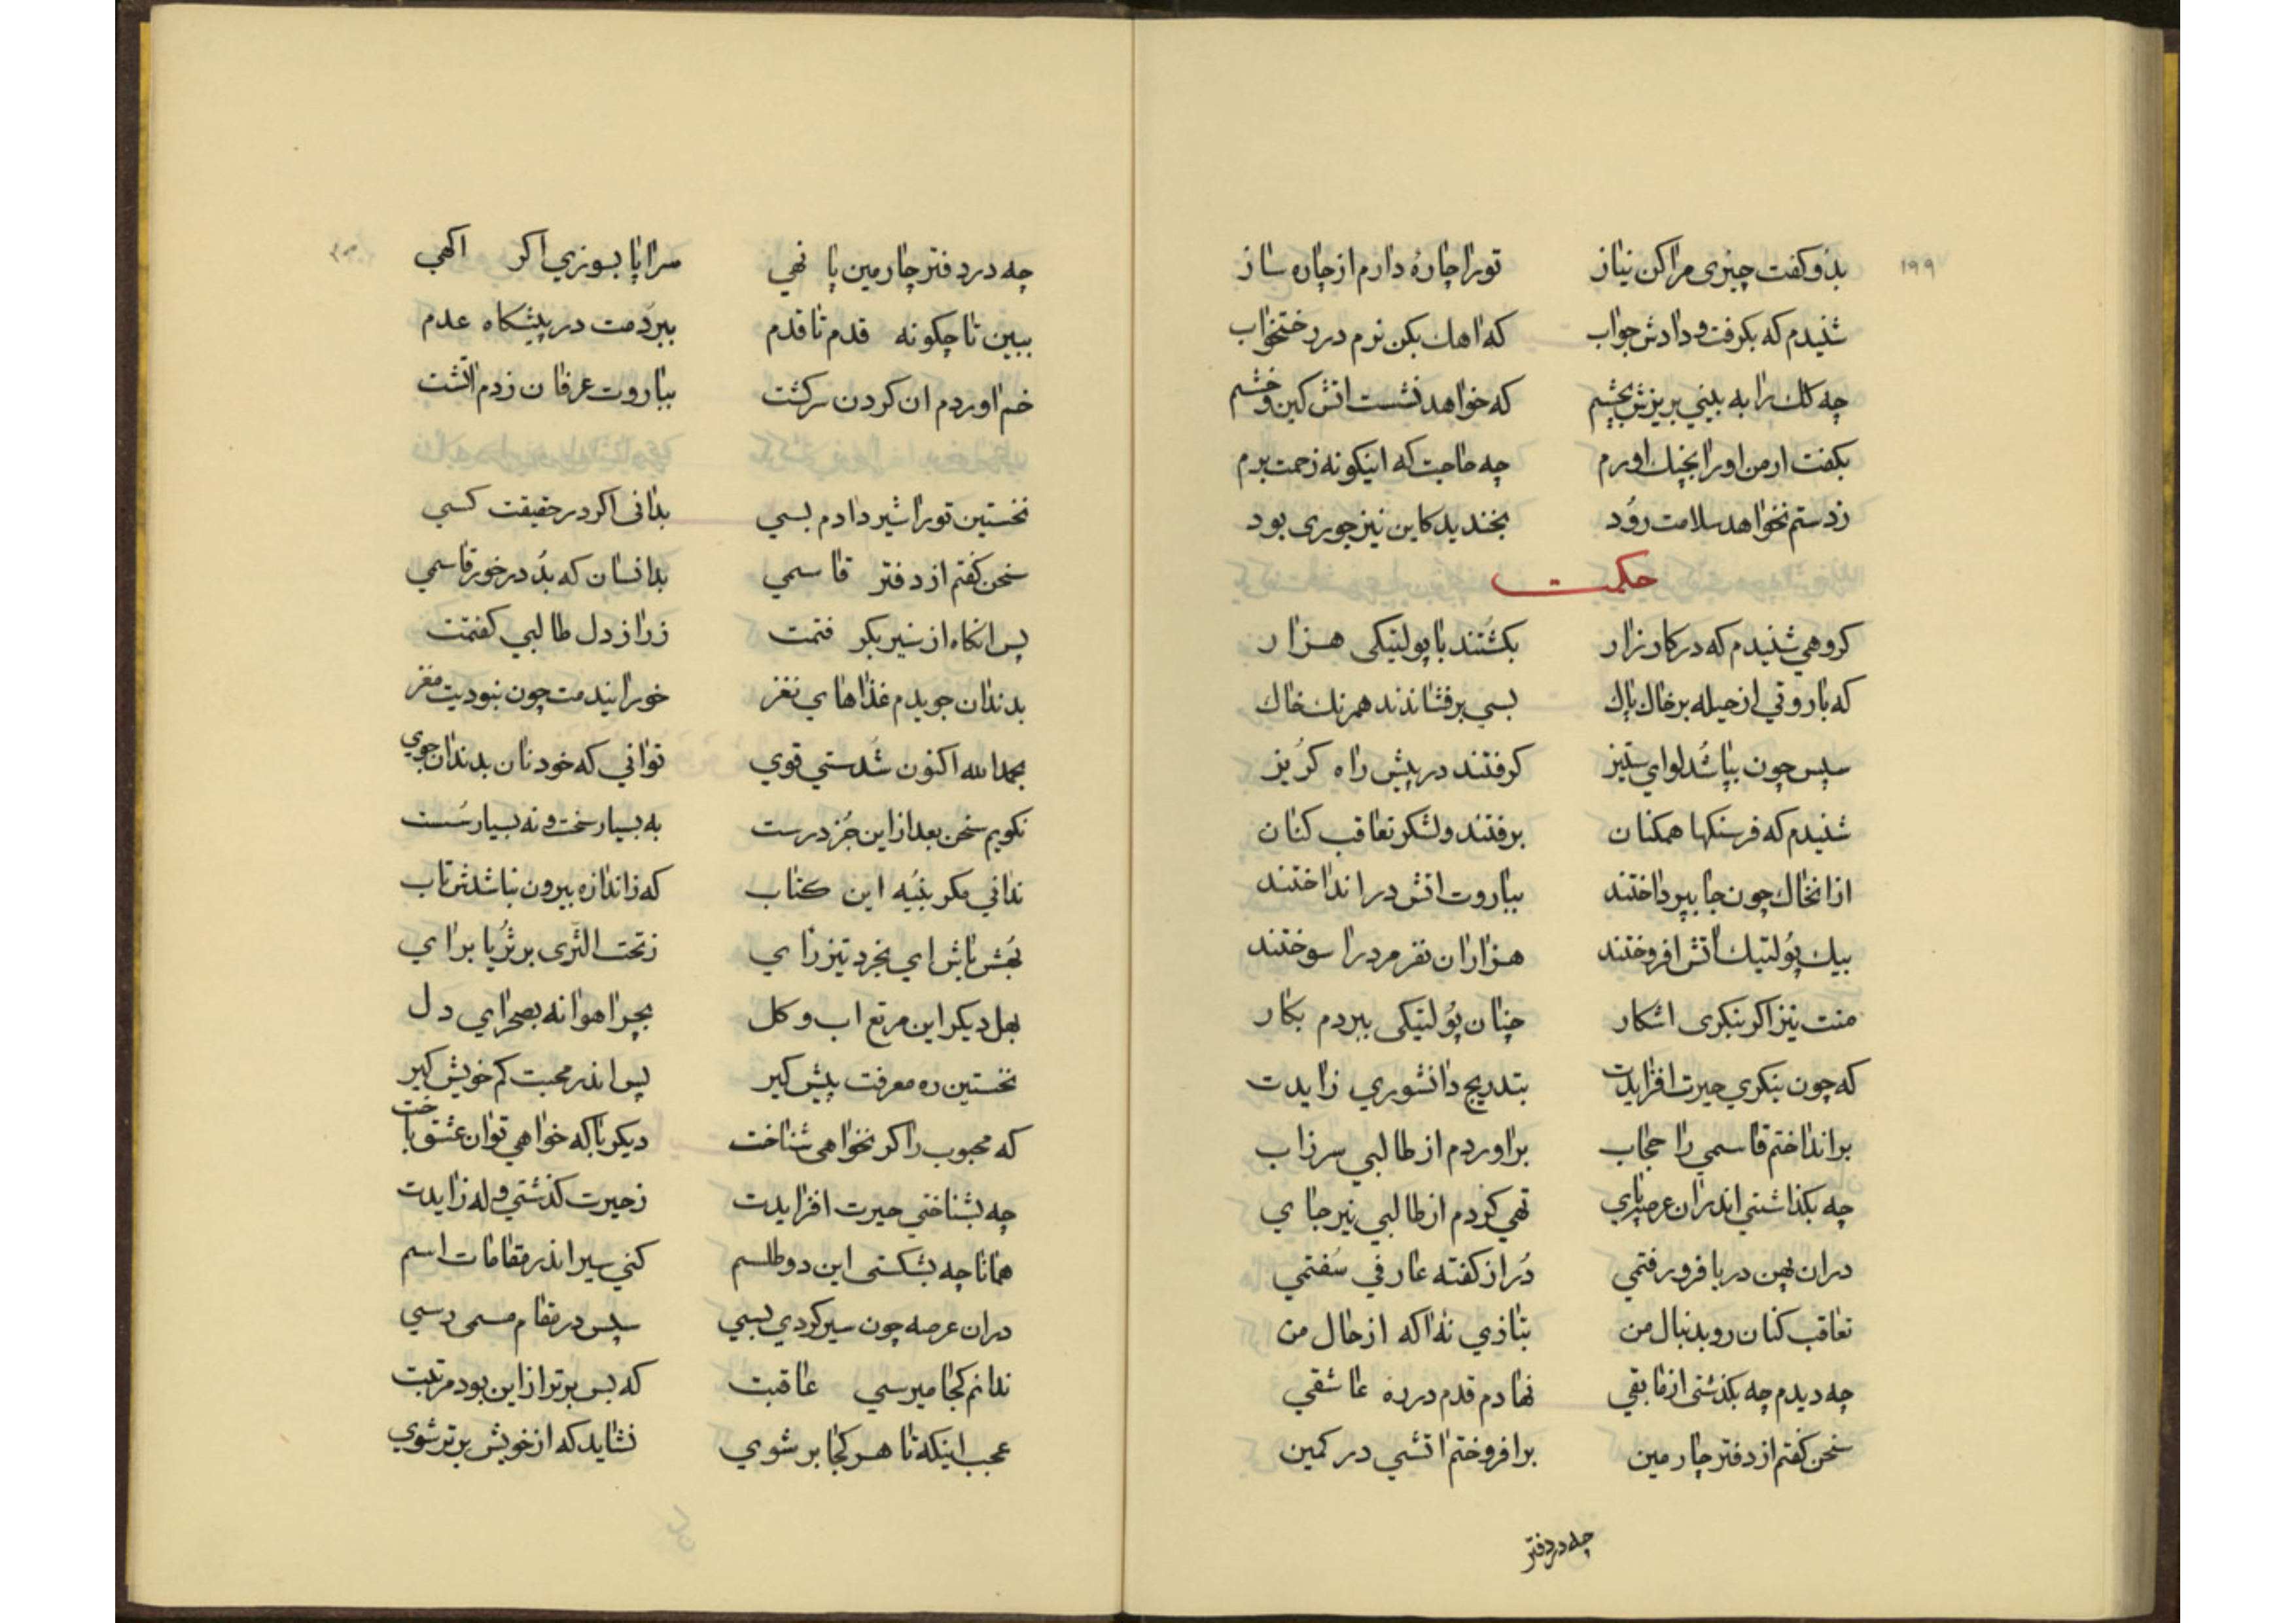 ۱۹۹
بدو کفت چیزی مراکن نیاز توراچارهٔ دارم ازچاره ساز
شنیدم که بکرفت و دادش جواب که اهك بکن نرم در رختخواب
چه کك را به بینی بریزش بچشم که خواهد نشست اتش کین و خشم
بکفت ار من اورا بچنك اورم چه حاجت که اینکونه زحمت برم
زدستم نخواهد سلامت رود بخندید کاین نیز جوری بود
حکمت
کروهی شنیدم که در کارزار بکشتند با پولتیکی هزار
که باروتی از حیله برخاك پاك بسی برفشاندند همرنك خاك
سپس چون بپا شد لوای ستیز کرفتند در پیش راه کریز
شنیدم که فرسنکها همکنان برفتند و لشکر تعاقب کنان
ازانخاك چون جا بپرداختند بباروت اتش در انداختند
بیك پولتیك اتش افروختند هزاران نفر مرد را سوختند
منت نیز اکر بنکری اشکار چنان پولتیکی ببردم بکار
که چون بنکری حیرت افزایدت بتدریج دانشوری زایدت
برانداختم قاسمی را حجاب براوردم از طالبی سر زاب
چه بکذاشتی اندران عرصه پای تهی کردم از طالبی نیز جای
دران پهن دریا فرو رفتمی دُر از کفته عارفی سُفتمی
تعاقب کنان رو بدنبال من بتازی نه اکه از حال من
چه دیدم چه بکذشتی از مابقی نهادم قدم در ره عاشقی
سخن کفتم از دفتر چارمین برافروختم اتشی در کمین
چه در دفتر
۲۰۰
چه در دفتر چارمین پا نهی سراپا بسوزی اکر اکهی
ببین تا چکونه قدم تا قدم ببردمت در پیشکاه عدم
خم اوردم ان کردن سرکشت بباروت عرفان زدم اتشت
نخستین تورا شیر دادم بسی بدانی اکر در حقیقت کسی
سخن کفتم از دفتر قاسمی بدانسان که بُد در خور قاسمی
پس انکاه از شیر بکرفتمت ز راز دل طالبی کفتمت
بدندان جویدم غذاهای نغز خورانیدمت چون نبودیت مغز
بحمدالله اکنون شدستی قوی توانی که خود نان بدندان جوی
نکویم سخن بعد ازاین جُز درست به بسیار سخت و نه بسیار سُست
ندانی مکر بنیه این کتاب که زاندازه بیرون نباشدش تاب
بهُش باش ای بخرد تیز رای ز تحت الثری بر ثریا برای
بهل دیکر این مرتع اب و کل بچر اهوانه بصحرای دل
نخستین ره معرفت پیش کیر پس اندر محبت کم خویش کیر
که محبوب را کر نخواهی شناخت دیکر با که خواهی توان عشق باخت
چه بشناختی حیرت افزایدت ز حیرت کذشتی وله زایدت
همانا چه بشکستی این دو طلسم کنی سیر اندر مقامات اسم
دران عرصه چون سیر کردی بسی سپس در مقام مسمی رسی
ندانم کجا میرسی عاقبت که بس برتر ازاین بود مرتبت
عجب اینکه تا هر کجا بر شوی نشاید که از خویش برتر شوی